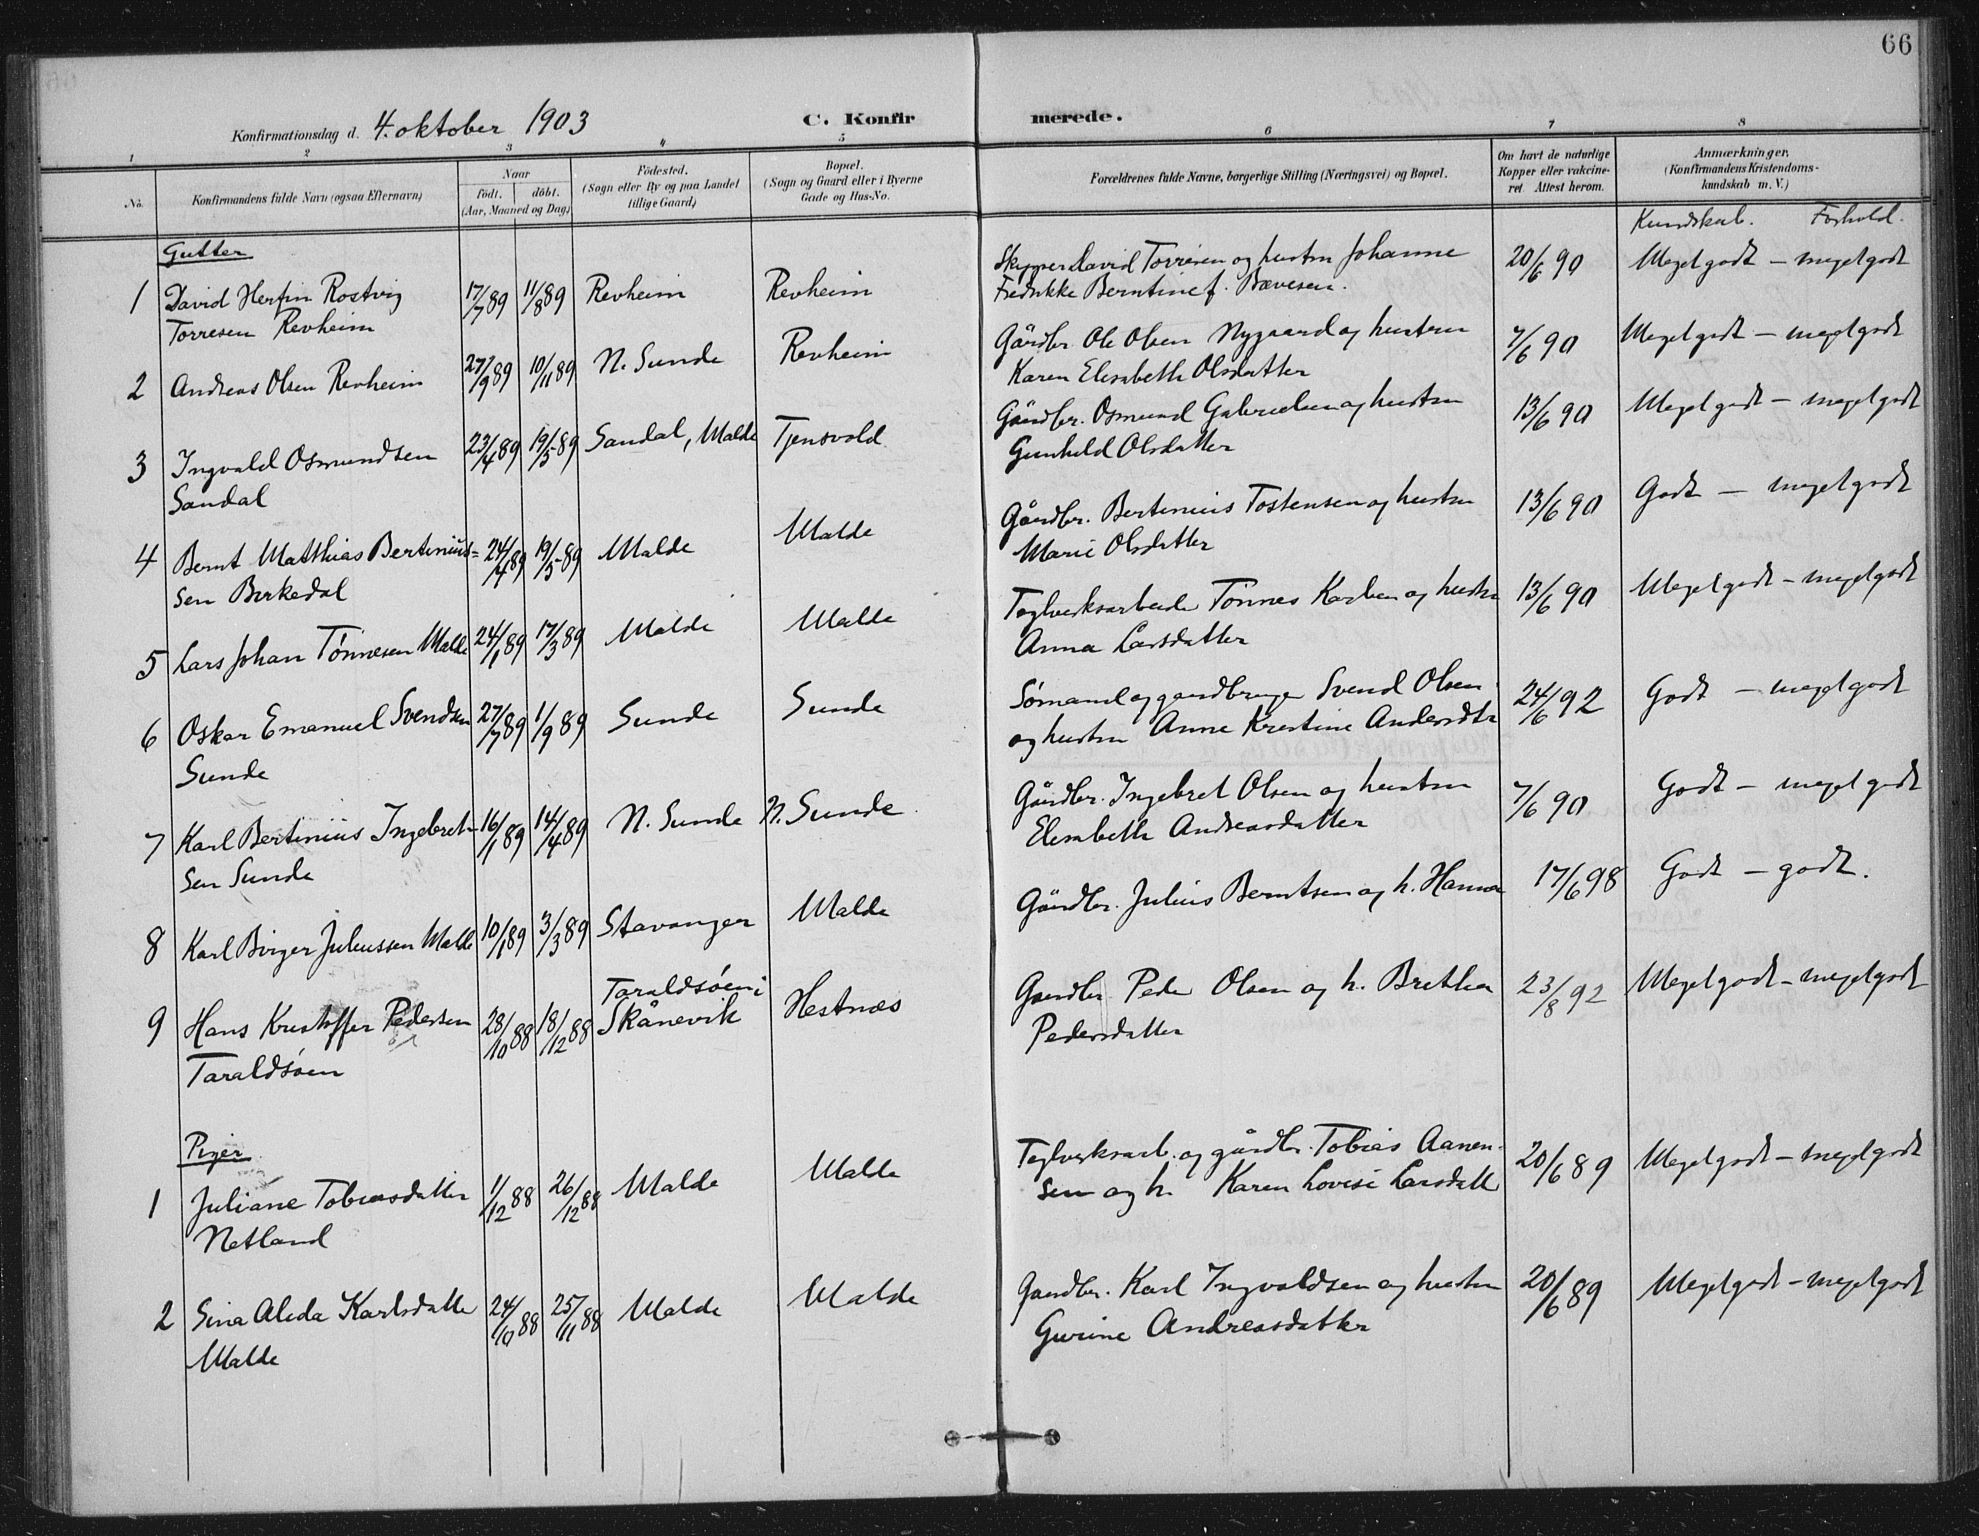 66
Konfirmationsdag d. 4. oktober 1903 C. Konfirmerede.
1 2 3 4 5 6 7 8
No. Konfirmandens fulde Navn (ogsaa Efternavn) Naar födt. döbt. (Aar, Maaned og Dag) Födested. (Sogn eller By og paa Landet tillige Gaard) Bopæl. (Sogn og Gaard eller i Byerne Gade og Hus-No. Forældrenes fulde Navne, borgerlige Stilling (Næringsvei) og Bopæl. Om havt de naturlige Kopper eller vakcineret. Attest herom. Anmærkninger. (Konfirmandens Kristendomskundskab m. V.)
Kundskab. Forhold.
Gutter
1 David Herfin Rostvig 17/7 89 11/8 89 Revheim Revheim Skipper David Torresen og hustru Johanne 20/6 90 Meget godt – meget godt
Torresen Revheim Fredrikke Berntine f.
2 Andreas Olsen Revheim 27/9 89 10/11 89 N. Sunde Revheim Gårdbr. Ole Olsen Nygaard og hustru 7/6 90 Meget godt – meget godt
Karen Elisabeth Olsdatter
3 Ingvald Osmundsen 23/4 89 19/5 89 Sandal, Malde Tjensvold Gårdbr. Osmund Gabrielsen og hustru 13/6 90 Meget godt – meget godt
Sandal Gunhild Olsdatter
4 Bernt Matthias Bertinius= 24/4 89 19/5 89 Malde Malde Gårdbr. Bertinius Tostensen og hustru 13/6 90 Godt – meget godt
sen Birkedal Marie Olsdatter
5 Lars Johan Tönnesen Malde 24/1 89 17/3 89 Malde Malde Teglverksarbeider Tönnes Karlsen og hustru 13/6 90 Meget godt – meget godt
Anna Larsdatter
6 Oskar Emanuel Svendsen 27/7 89 1/9 89 Sunde Sunde Sömand og gaardbruger Svend Olsen 24/6 92 Godt – meget godt
Sunde og hustru Anne Kristine Andersdtr
7 Karl Bertinius Ingebret- 16/1 89 14/4 89 N. Sunde N. Sunde Gårdbr. Ingebret Olsen og hustru 7/6 90 Godt – meget godt
sen Sunde Elisabeth Andreasdatter
8 Karl Birger Juliussen Malde 10/1 89 3/3 89 Stavanger Malde Gårdbr. Julius Berntsen og h. Hanna 17/6 98 Godt – godt.
9 Hans Kristoffer Pedersen 28/10 88 18/12 88 Taraldsöen i Skånevik Hestnæs Gaardbr. Peder Olsen og h. Bretha 23/8 92 Meget godt – meget godt
Taraldsöen Pedersdatter
Piger
1 Juliane Tobiasdatter 1/12 88 26/12 88 Malde Malde Teglverksarb. og gårdbr. Tobias Aanen- 20/6 89 Meget godt – meget godt
Netland sen og h. Karen Lovise Larsdatt
2 Sina Alida Karlsdatter 24/10 88 25/11 88 Malde Malde Gaardbr. Karl Ingvaldsen og hustru 20/6 89 Meget godt – meget godt
Malde Gurine Andreasdatter